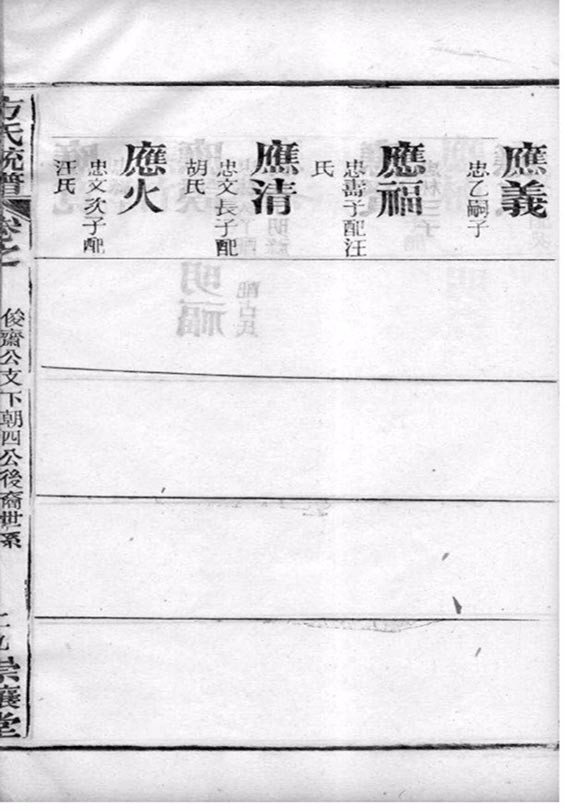 應義
忠乙嗣子
應福
忠壽子配汪
氏
應清
忠文長子配
胡氏
應火
忠文次子配
汪氏
方氏統譜
卷之
俊齋公支下朝四公後裔世系
崇讓堂